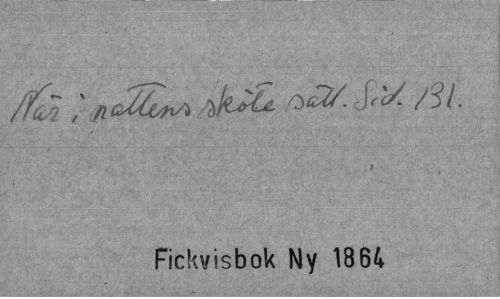 När i nattens sköte satt. Sid. 131.
Fickvisbok Ny 1864